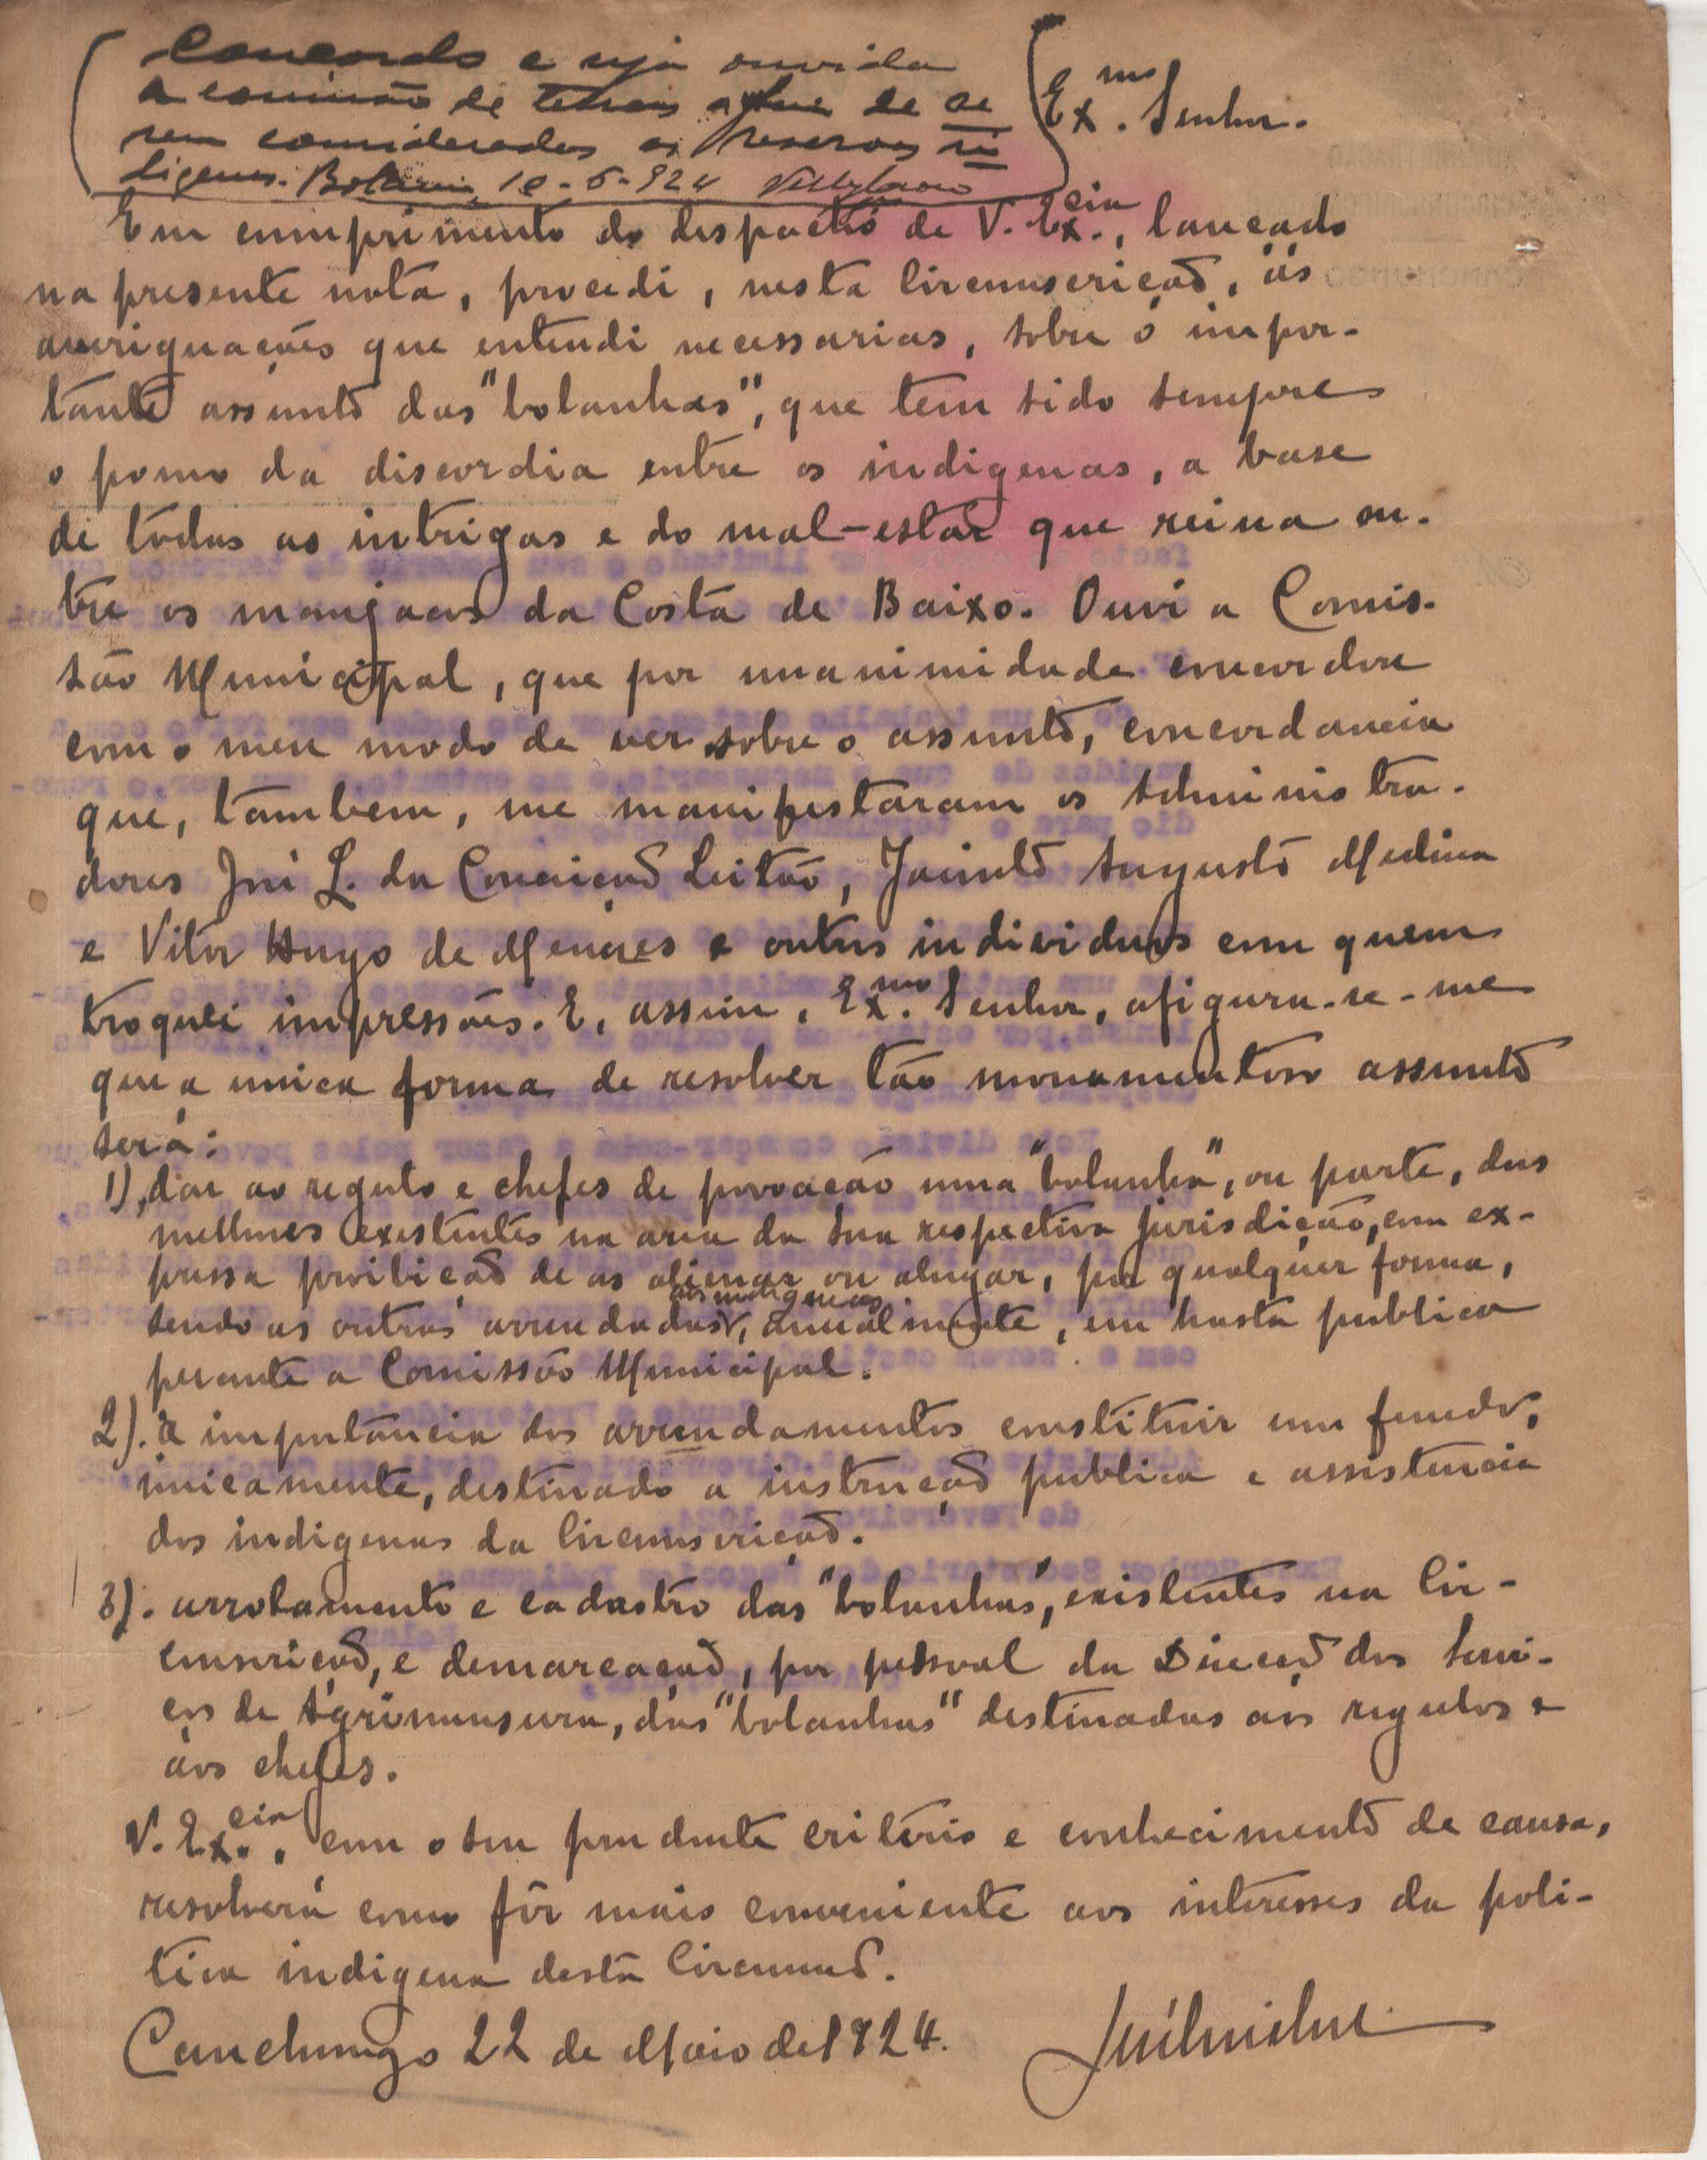 Concordo e seja ouvida
a comissão de terras a fim de se
rem consideradas as reservas in
digenas. Bolama, 10-6-924
Ex.mo Senhor.
Em cumprimento do despacho de V. Ex.cia, lançado
na presente nota, procedi, nesta Circunscrição, ás
averiguações que entendi necessarias, sobre o impor-
tante assunto das "bolanhas", que tem sido sempre
o pomo da discordia entre os indigenas, a base
de todas as intrigas e do mal-estar que reina en-
tre os manjacos da Costa de Baixo. Ouvi a Comis-
são Municipal, que por unanimidade concordou
com o meu modo de ver sobre o assunto, concordancia
que, tambem, me manifestaram os Administra-
dores José L. da Conceição Leitão, Jacinto Augusto Medina
e Vitor Hugo de Menezes e outros individuos com quem
troquei impressões. E, assim, Ex.mo Senhor, afigura-se-me
que a unica forma de resolver tão monumentoso assunto
será:
1), dar ao regulo e chefes de povoação uma "bolanha", ou parte, das
melhores existentes na area da sua respectiva jurisdição, com ex-
pressa proibição de as alienar ou alugar, por qualquer forma,
sendo as outras arrendadas aos indigenas, anualmente, em hasta publica
perante a Comissão Municipal.
2). a importancia dos arrendamentos constituir um fundo,
unicamente, destinado a instrução publica e assistencia
dos indigenas da Circunscrição.
3). arrolamento e cadastro das "bolanhas", existentes na Cir-
cunscrição, e demarcação, por pessoal da Direcção dos Servi-
ços de Agrimensura, das "bolanhas" destinadas aos regulos e
aos chefes.
V. Ex.cia, com o seu prudente criterio e conhecimento de causa,
resolverá como fôr mais conveniente aos interesses da poli-
tica indigena desta
Canchungo 22 de Maio de 1924.